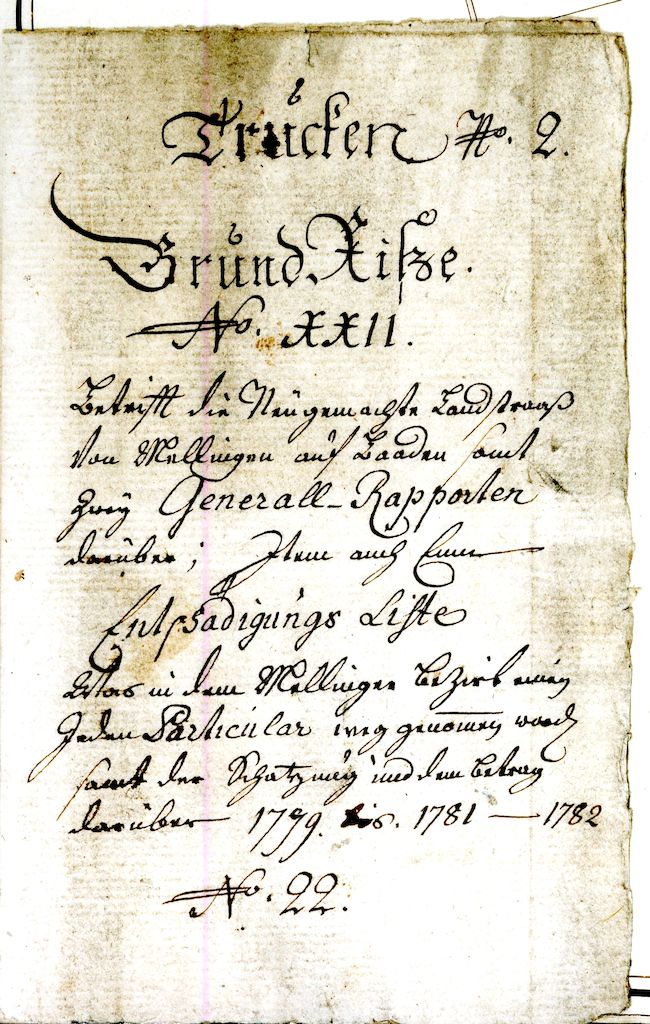 Trücken No. 2.
Grund Riſze.
No. XXII.
Betrifft die Neügemachte Landstraaß
Von Mellingen auf Baaden samt
Zwey Generall-Rapporten
darüber; Item auch Eine
Entschädigungs Liste
Was in dem Mellinger Bezirk einem
Jeden Particular weg genomen word
samt der Schatzung und dem betrag
darüber 1779. bis. 1781 — 1782
No. 22.